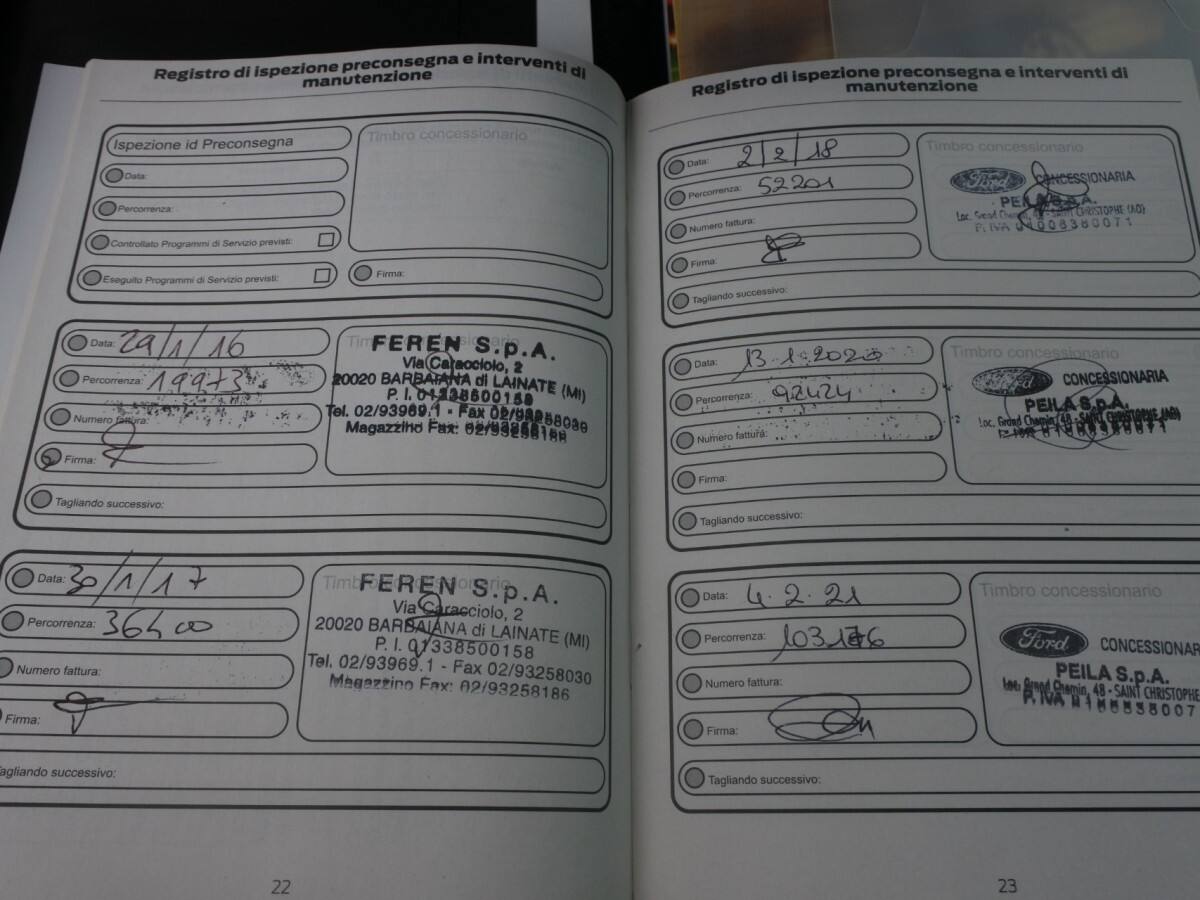 Registro di ispezione preconsegna e interventi di
manutenzione
Ispezione id Preconsegna
Data:
Percorrenza:
Controllato Programmi di Servizio previsti:
Eseguito Programmi di Servizio previsti:
Timbro concessionario
Firma:
Data: 29/1/16
Percorrenza: 19973
Numero fattura:
Firma:
Tagliando successivo:
FEREN S.p.A.
Via Caracciolo, 2
20020 BARBAIANA di LAINATE (MI)
P. I. 01338500158
Tel. 02/93969.1 - Fax 02/93258030
Magazzino Fax: 02/93258186
Data: 30/1/17
Percorrenza: 36400
Numero fattura:
Firma:
Tagliando successivo:
Timbro concessionario
FEREN S.p.A.
Via Caracciolo, 2
20020 BARBAIANA di LAINATE (MI)
P. I. 01338500158
Tel. 02/93969.1 - Fax 02/93258030
Magazzino Fax: 02/93258186
22
Registro di ispezione preconsegna e interventi di
manutenzione
Data: 2/2/18
Percorrenza: 52201
Numero fattura:
Firma:
Tagliando successivo:
Timbro concessionario
Ford CONCESSIONARIA
PEILA S.p.A.
Loc. Grand Chemin, 48 - SAINT CHRISTOPHE (AO)
P. IVA 01008380071
Data: 13.1.2020
Percorrenza: 92424
Numero fattura:
Firma:
Tagliando successivo:
Timbro concessionario
Ford CONCESSIONARIA
PEILA S.p.A.
Loc. Grand Chemin, 48 - SAINT CHRISTOPHE (AO)
Data: 4.2.21
Percorrenza:
Numero fattura:
Firma:
Tagliando successivo:
Timbro concessionario
Ford CONCESSIONAR
PEILA S.p.A.
Loc. Grand Chemin, 48 - SAINT CHRISTOPHE
P. IVA
23